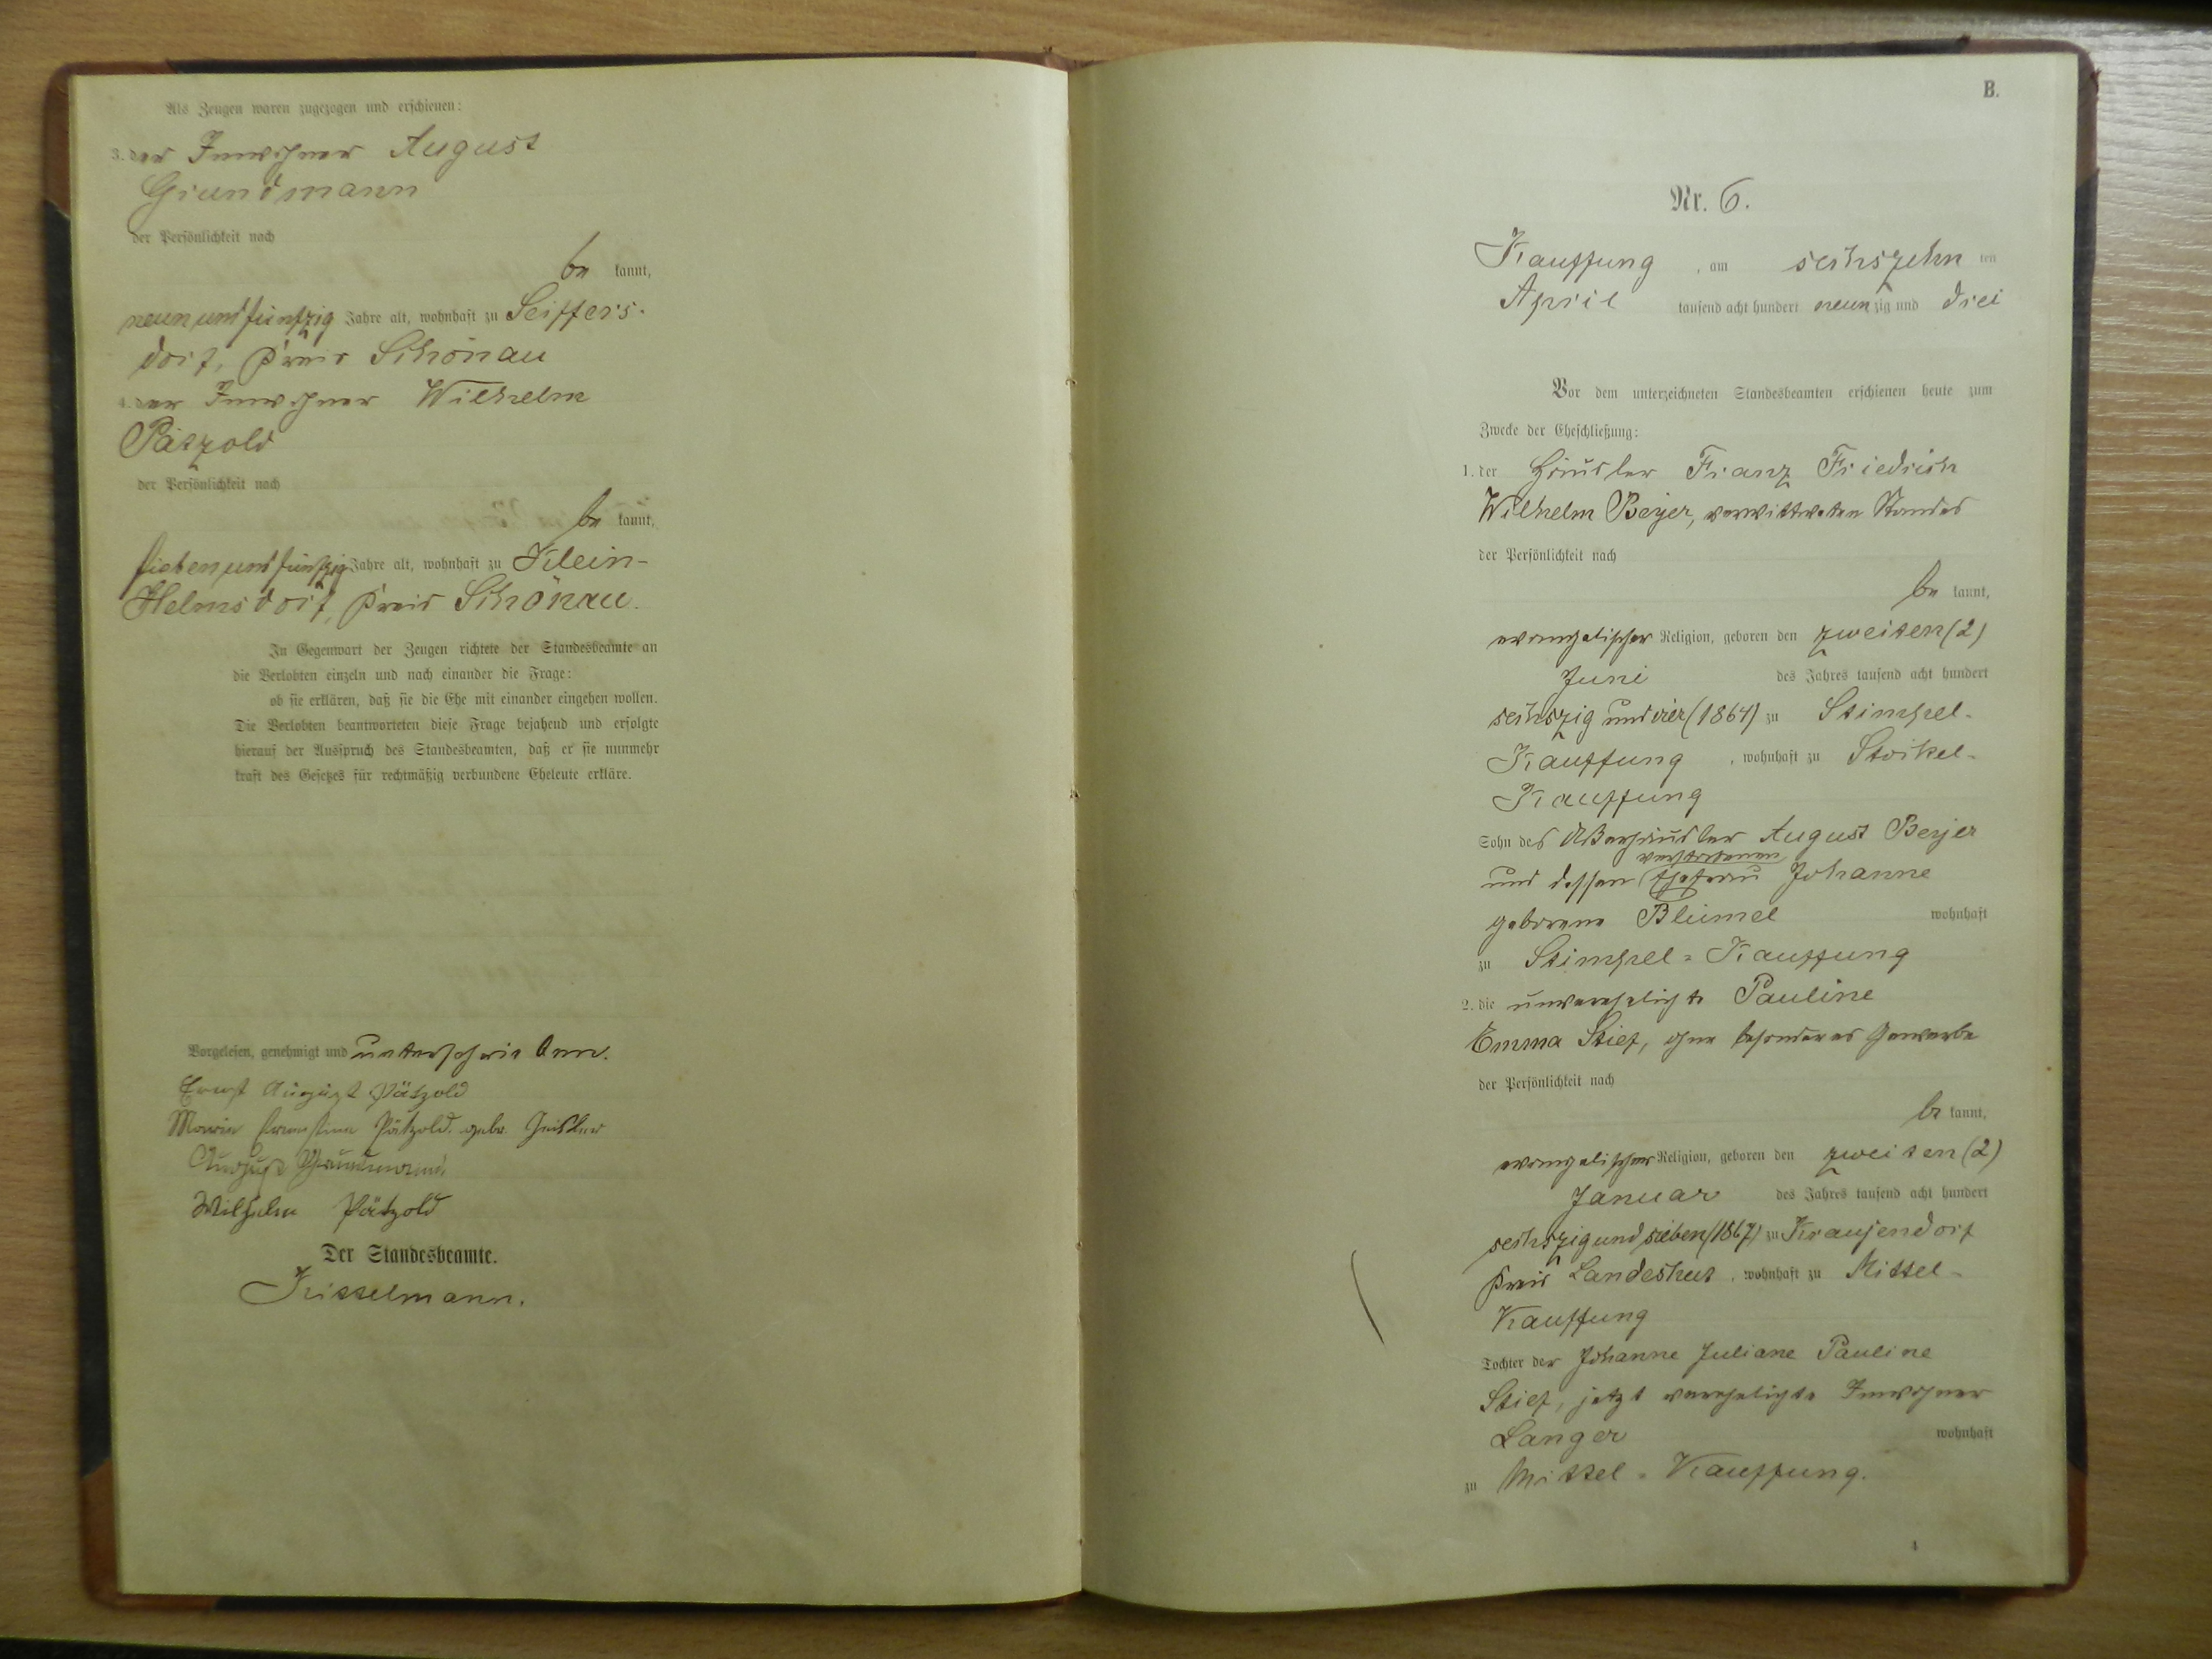 Als Zeugen waren zugezogen und erschienen:
3. der Inwohner August
Grundmann
der Persönlichkeit nach
be kannt,
neunundfünfzig Jahre alt, wohnhaft zu Seiffers-
dorf, Kreis Schönau
4. der Inwohner Wilhelm
Pätzold
der Persönlichkeit nach
be kannt,
siebenundfünfzig Jahre alt, wohnhaft zu Klein-
Helmsdorf, Kreis Schönau.
In Gegenwart der Zeugen richtete der Standesbeamte an
die Verlobten einzeln und nach einander die Frage:
ob sie erklären, daß sie die Ehe mit einander eingehen wollen.
Die Verlobten beantworteten diese Frage bejahend und erfolgte
hierauf der Ausspruch des Standesbeamten, daß er sie nunmehr
kraft des Gesetzes für rechtmäßig verbundene Eheleute erkläre.
Vorgelesen, genehmigt und unterschrieben.
Ernst August Pätzold
Marie Ernestine Pätzold geb. Geisler
August Grundmann
Wilhelm Pätzold
Der Standesbeamte.
Kisselmann.
B.
Nr. 6.
Kauffung, am sechszehn ten
April tausend acht hundert neunzig und drei
Vor dem unterzeichneten Standesbeamten erschienen heute zum
Zwecke der Eheschließung:
1. der Häusler Franz Friedrich
Wilhelm Beyer, verwittweten Standes
der Persönlichkeit nach
be kannt,
evangelischer Religion, geboren den zweiten (2)
Juni des Jahres tausend acht hundert
sechszig und vier (1864) zu Stimpel-
Kauffung, wohnhaft zu Stöckel-
Kauffung
Sohn des August Beyer
verstorbenen
und dessen Ehefrau Johanne
geborene Blümel wohnhaft
zu Stimpel-Kauffung
2. die unverehelichte Pauline
Emma Stief, ohne besonderes Gewerbe
der Persönlichkeit nach
be kannt,
evangelischer Religion, geboren den zweiten (2)
Januar des Jahres tausend acht hundert
sechszig und sieben (1867) zu Krausendorf
Kreis Landeshut, wohnhaft zu Mittel-
Kauffung
Tochter der Johanne Juliane Pauline
Stief, jetzt verehelichte Inwohner
Langer wohnhaft
zu Mittel-Kauffung.